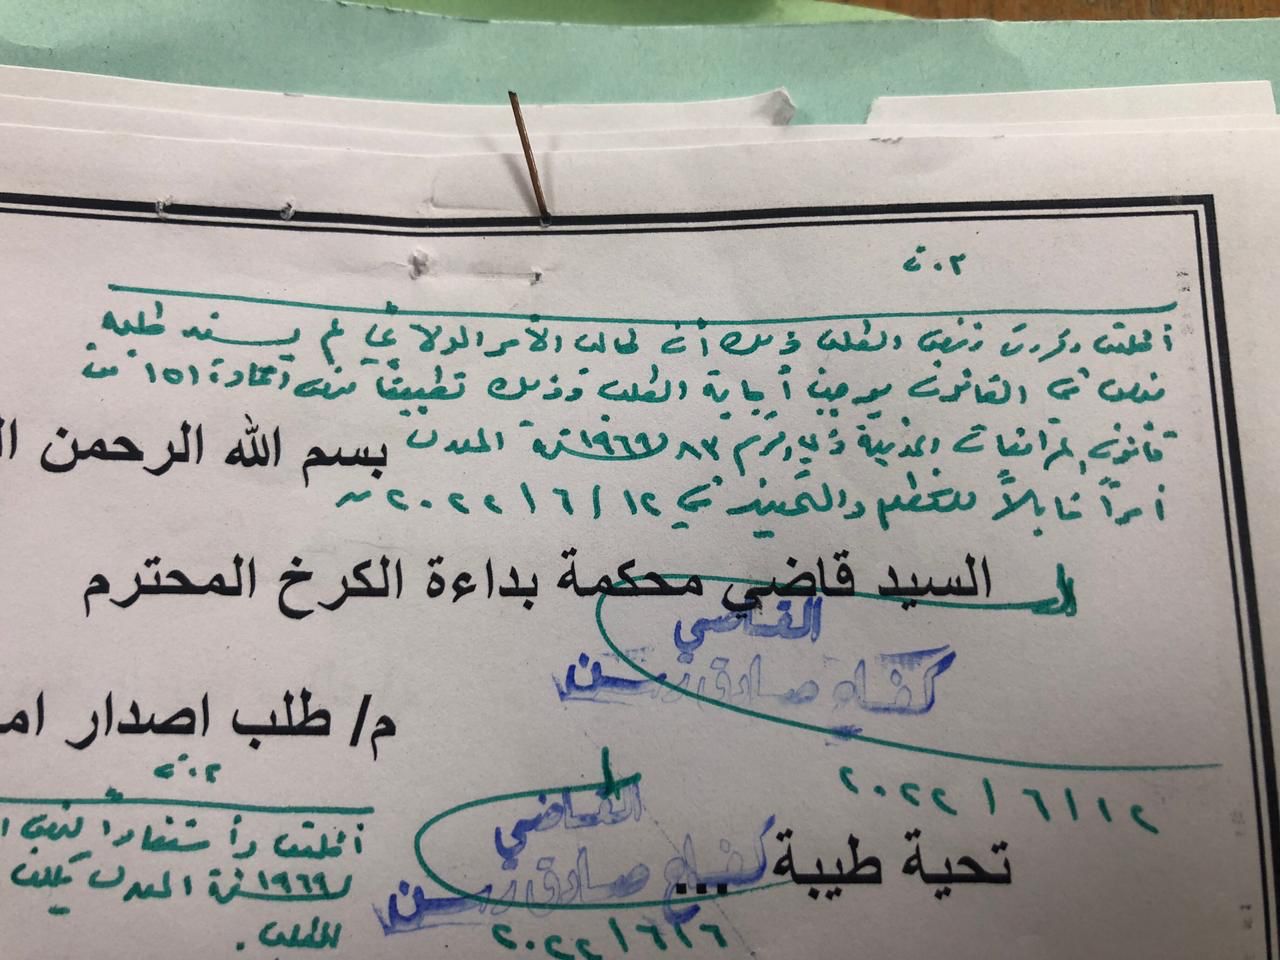 ت.م
أطلعت وقررت رفض الطلب وذلك أن طالب الأمر الولائي لم يسند طلبه
نص في القانون يوجب أجابة الطلب وذلك تطبيقاً لنص المادة ١٥١ من
قانون المرافعات المدنية ذي الرقم ٨٣ لسنة ١٩٦٩ المعدل
أمراً قابلاً للتظلم والتمييز في ٢٠٢٢/٦/١٢
بسم الله الرحمن ال
السيد قاضي محكمة بداءة الكرخ المحترم
القاضي
كفاح صادق
٢٠٢٢/٦/١٢
م/ طلب اصدار ام
ت.م
أطلعت وأستنادا لنص ا
لسنة ١٩٦٩ المعدل
الطلب .
القاضي
كفاح صادق
٢٠٢٢/٦/٦
تحية طيبة ...